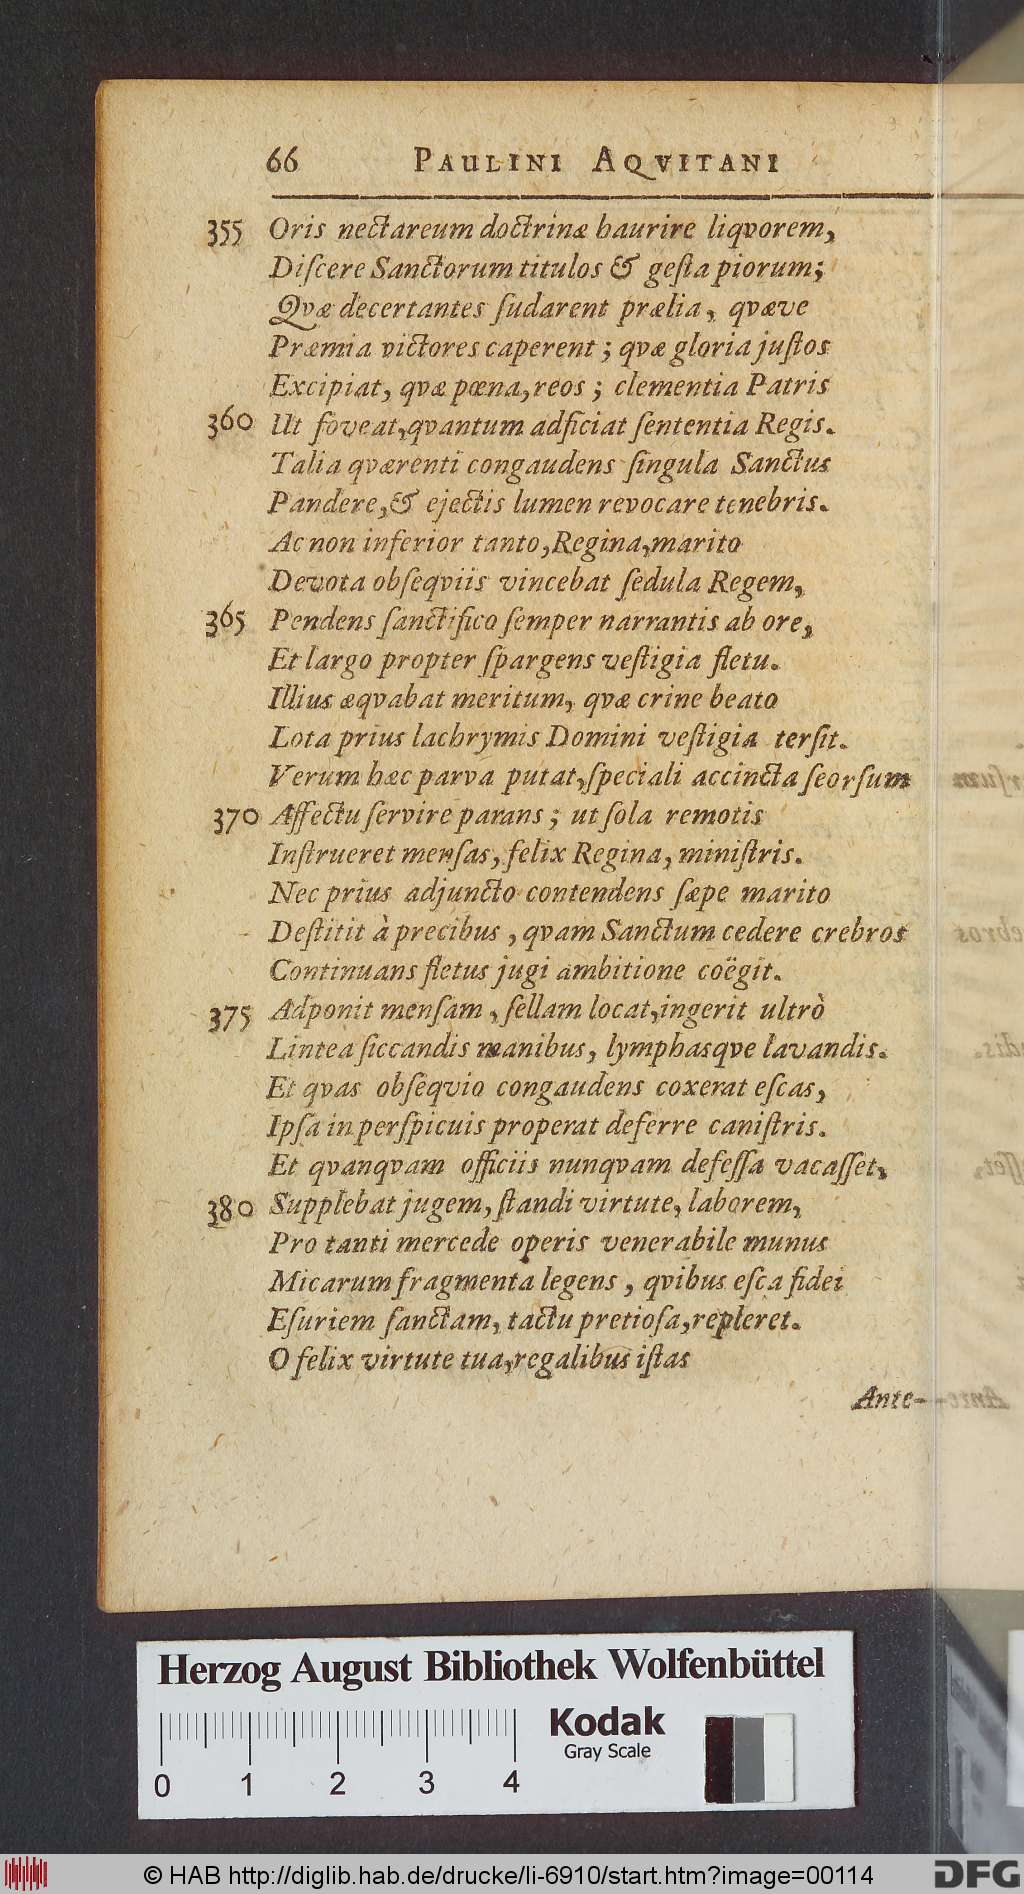 66 PAULINI AQVITANI
355 Oris nectareum doctrinæ haurire liqvorem,
Diſcere Sanctorum titulos & geſta piorum;
Qvæ decertantes ſudarent prælia, qvæve
Præmia victores caperent; qvæ gloria juſtos
Excipiat, qvæ pœna, reos; clementia Patris
360 Ut foveat, qvantum adficiat ſententia Regis.
Talia qværenti congaudens ſingula Sanctus
Pandere, & ejectis lumen revocare tenebris.
Ac non inferior tanto, Regina, marito
Devota obſeqviis vincebat ſedula Regem,
365 Pendens ſanctifico ſemper narrantis ab ore,
Et largo propter ſpargens veſtigia fletu.
Illius æqvabat meritum, qvæ crine beato
Lota prius lachrymis Domini veſtigia terſit.
Verum hæc parva putat, ſpeciali accincta ſeorſum
370 Affectu ſervire parans; ut ſola remotis
Inſtrueret menſas, felix Regina, miniſtris.
Nec prius adjuncto contendens ſæpe marito
Deſtitit à precibus, qvam Sanctum cedere crebros
Continuans fletus jugi ambitione coëgit.
375 Adponit menſam, ſellam locat, ingerit ultrò
Lintea ſiccandis manibus, lymphasqve lavandis.
Et qvas obſeqvio congaudens coxerat eſcas,
Ipſa in perſpicuis properat deferre caniſtris.
Et qvanqvam officiis nunqvam defeſſa vacaſſet,
380 Supplebat jugem, ſtandi virtute, laborem,
Pro tanti mercede operis venerabile munus
Micarum fragmenta legens, qvibus eſca fidei
Eſuriem ſanctam, tactu pretioſa, repleret.
O felix virtute tua, regalibus iſtas
Ante-
Herzog August Bibliothek Wolfenbüttel
Kodak
Gray Scale
0 1 2 3 4
© HAB http://diglib.hab.de/drucke/li-6910/start.htm?image=00114
DFG